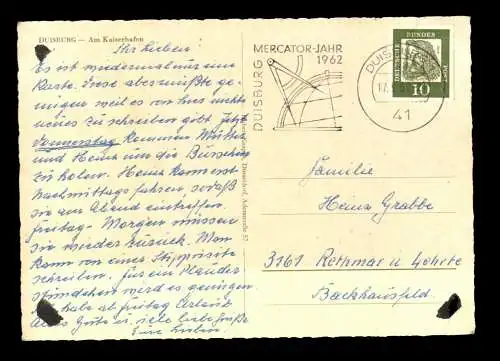 DUISBURG — Am Kaiserhafen
Ihr Lieben
Es ist wiedermal nur eine
Karte. Diese aber müßte ge-
nügen weil es von hier nichts
neues zu schreiben gibt. Jetzt
Donnerstag kommen Mutter
und Heinz um die Bürschen
zu holen. Heinz kann erst
Nachmittags fahren, sodaß
sie am Abend eintreffen.
Freitag - Morgen müssen
sie wieder zurück. Man
kann von einer Stippvisite
schreiben. Für ein Plauder
stündchen wird es genügen
halb ab Freitag Urlaub
Alles Gute u. viele liebe Grüße
Eure Lieben
Düsseldorf, Adersstraße 57
DUISBURG
MERCATOR-JAHR
1962
DUISBURG
41
DEUTSCHE BUNDESPOST
10
Familie
Heinz Grabbe
3161 Rethmar ü Lehrte
Backhausfeld.